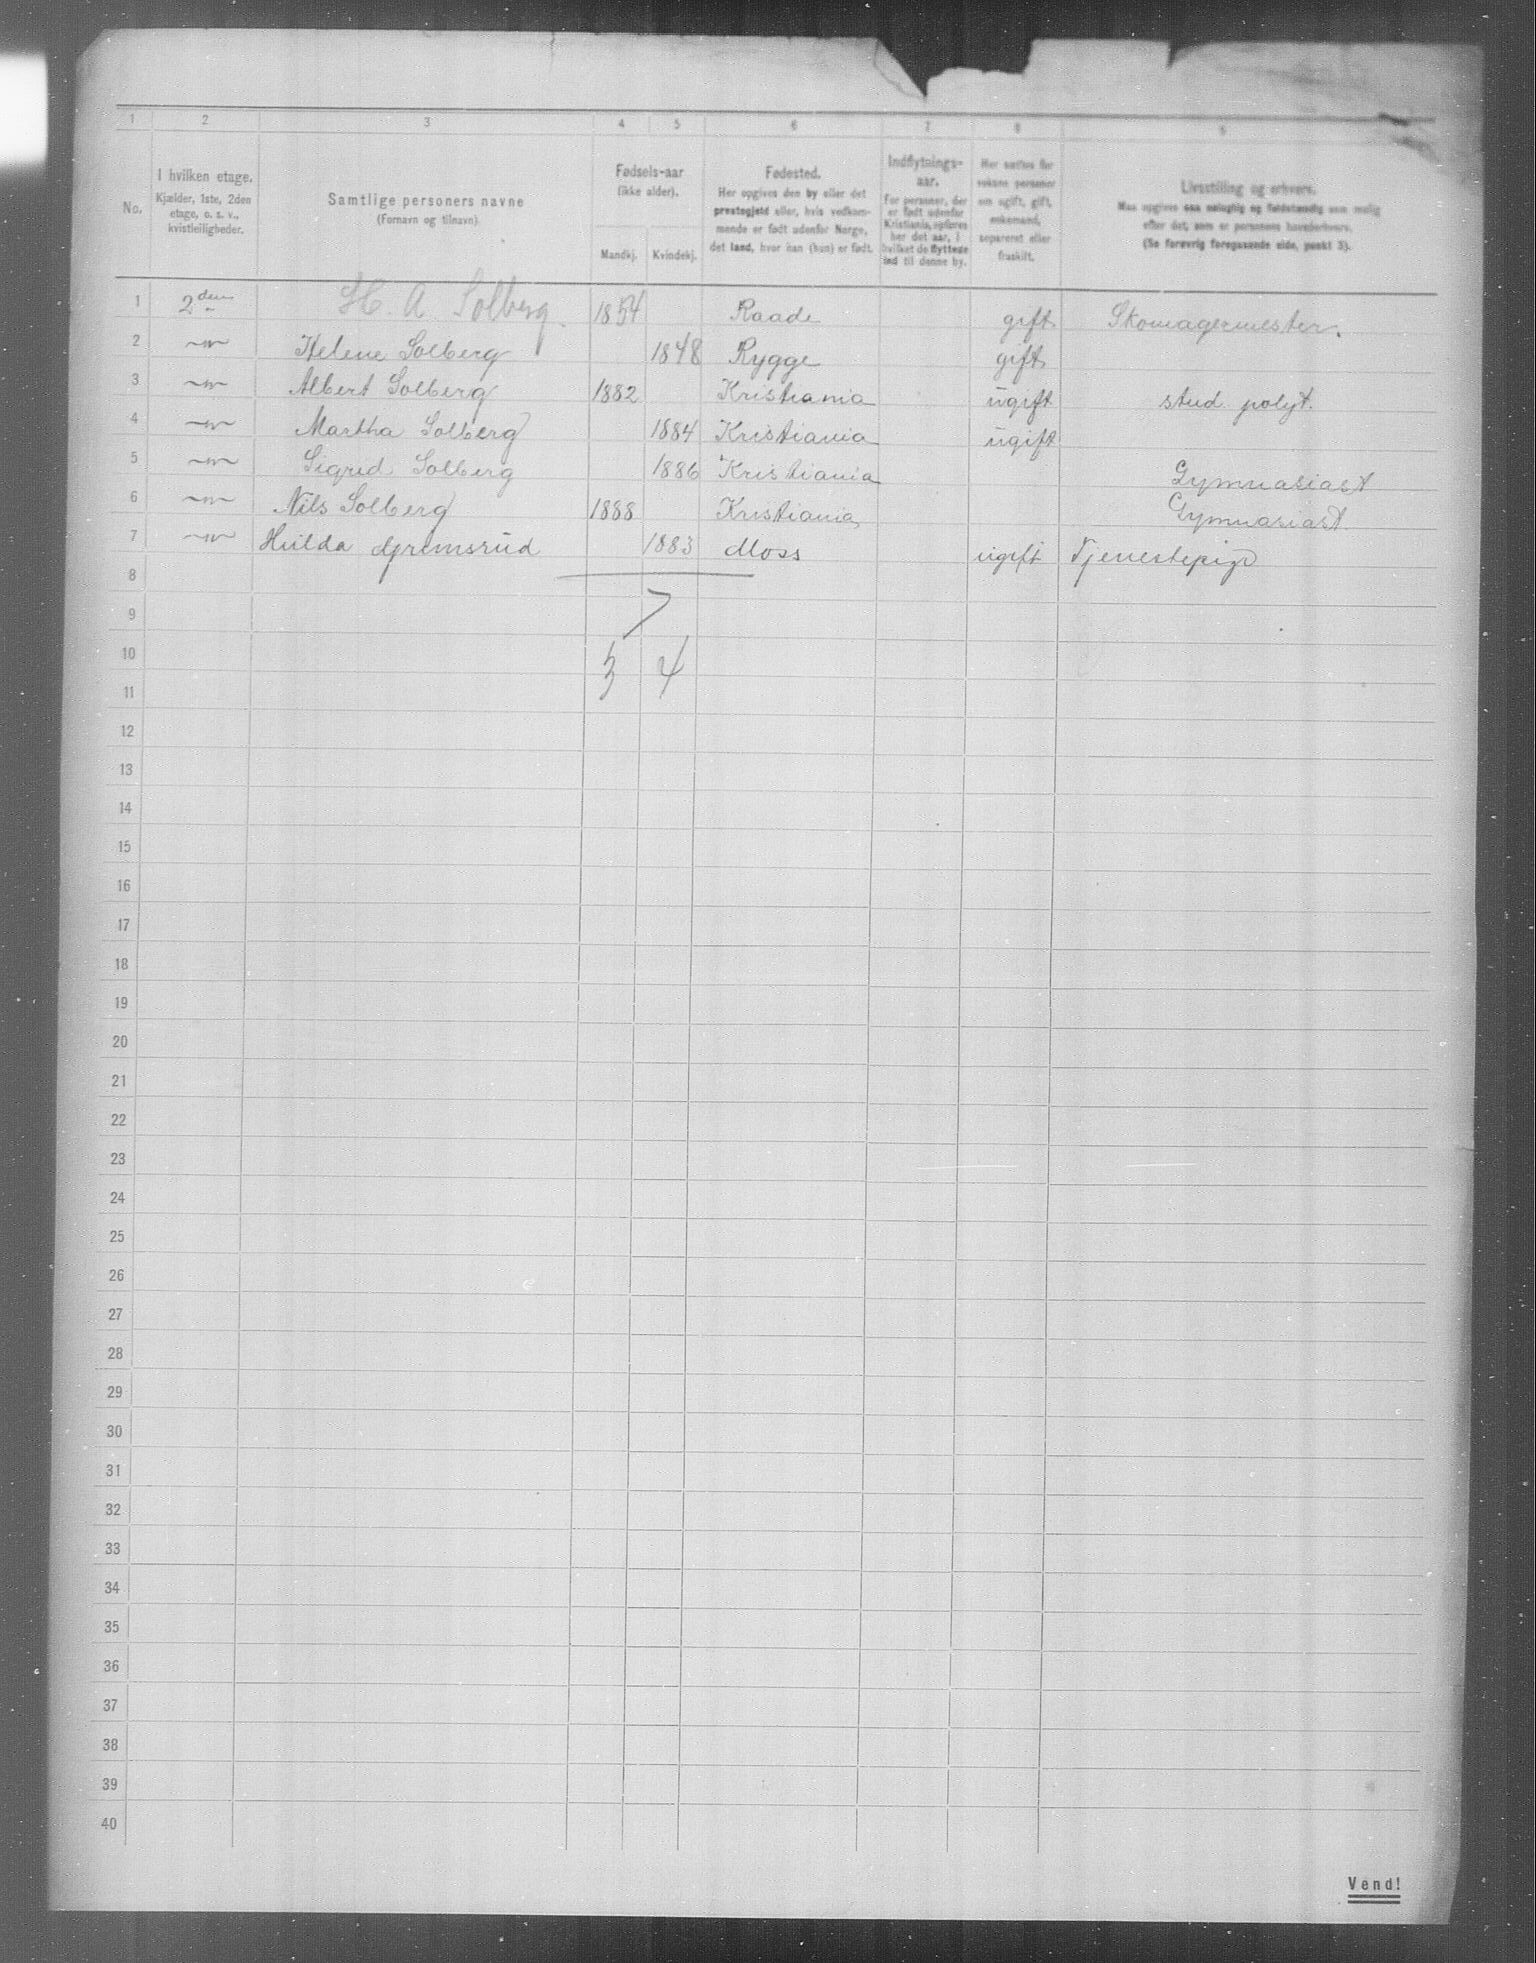 1 2 3 4 5 6 7 8 9
No.
I hvilken etage.
Kjælder, 1ste, 2den
etage, o. s. v.,
kvistleiligheder.
Samtlige personers navne
(Fornavn og tilnavn).
Fødsels-aar
(ikke alder).
Mandkj. Kvindekj.
Fødested.
Her opgives den by eller det
prestegjeld eller, hvis vedkom-
mende er født udenfor Norge,
det land, hvor han (hun) er født.
Indflytnings-
aar.
For personer, der
er født udenfor
Kristiania, opføres
her det aar, i
hvilket de flyttede
ind til denne by.
Her sættes for
voksne personer
om ugift, gift,
enkemand,
separeret eller
fraskilt.
Livsstilling og erhverv.
Man opgive saa nøiagtig og fuldstændig som mulig
efter det, som er personens hovederhverv.
(Se forøvrig foregaaende side, punkt 3).
1 2den H. A. Solberg. 1854 Raade gift Skomagermester.
2 —"— Helene Solberg 1848 Rygge gift
3 —"— Albert Solberg 1882 Kristiania ugift stud. polyt.
4 —"— Martha Solberg 1884 Kristiania ugift
5 —"— Sigrid Solberg 1886 Kristiania Gymnasiast
6 —"— Nils Solberg 1888 Kristiania Gymnasiast
7 —"— Hulda Grimsrud 1883 Moss ugift Tjenestepige
8
9 7
10 3 4
11
12
13
14
15
16
17
18
19
20
21
22
23
24
25
26
27
28
29
30
31
32
33
34
35
36
37
38
39
40
Vend!